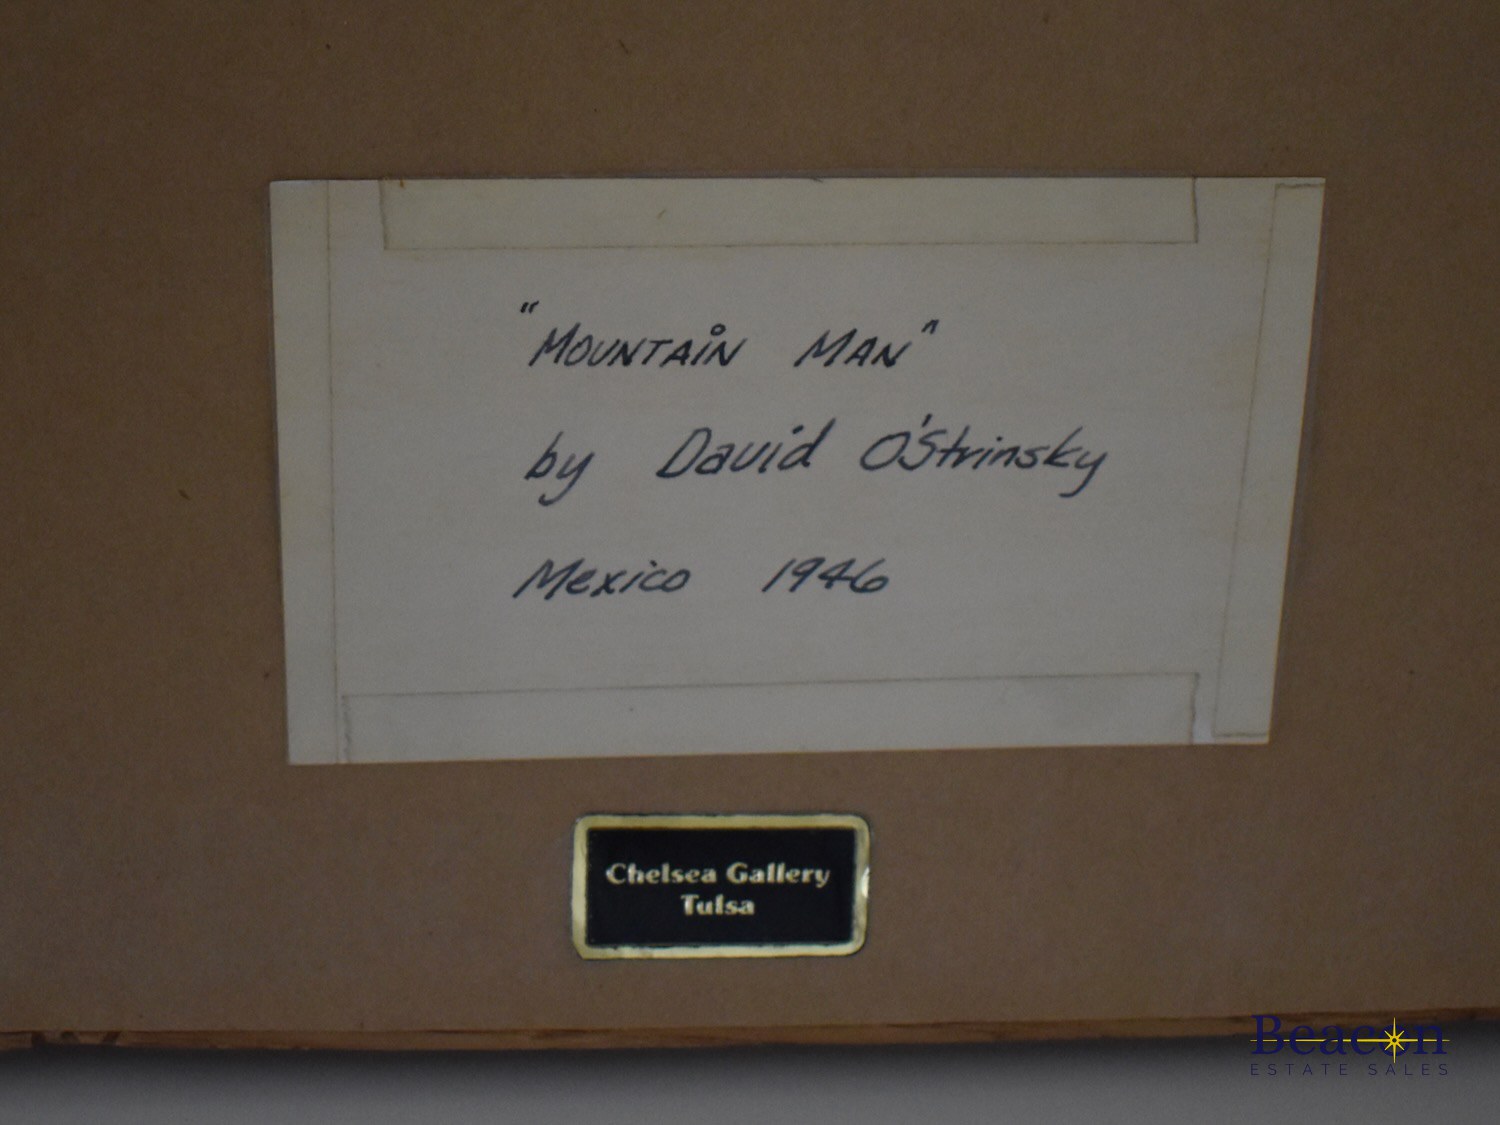 "MOUNTAIN MAN"
by David O'Strinsky
Mexico 1946
Chelsea Gallery
Tulsa
Beacon
ESTATE SALES